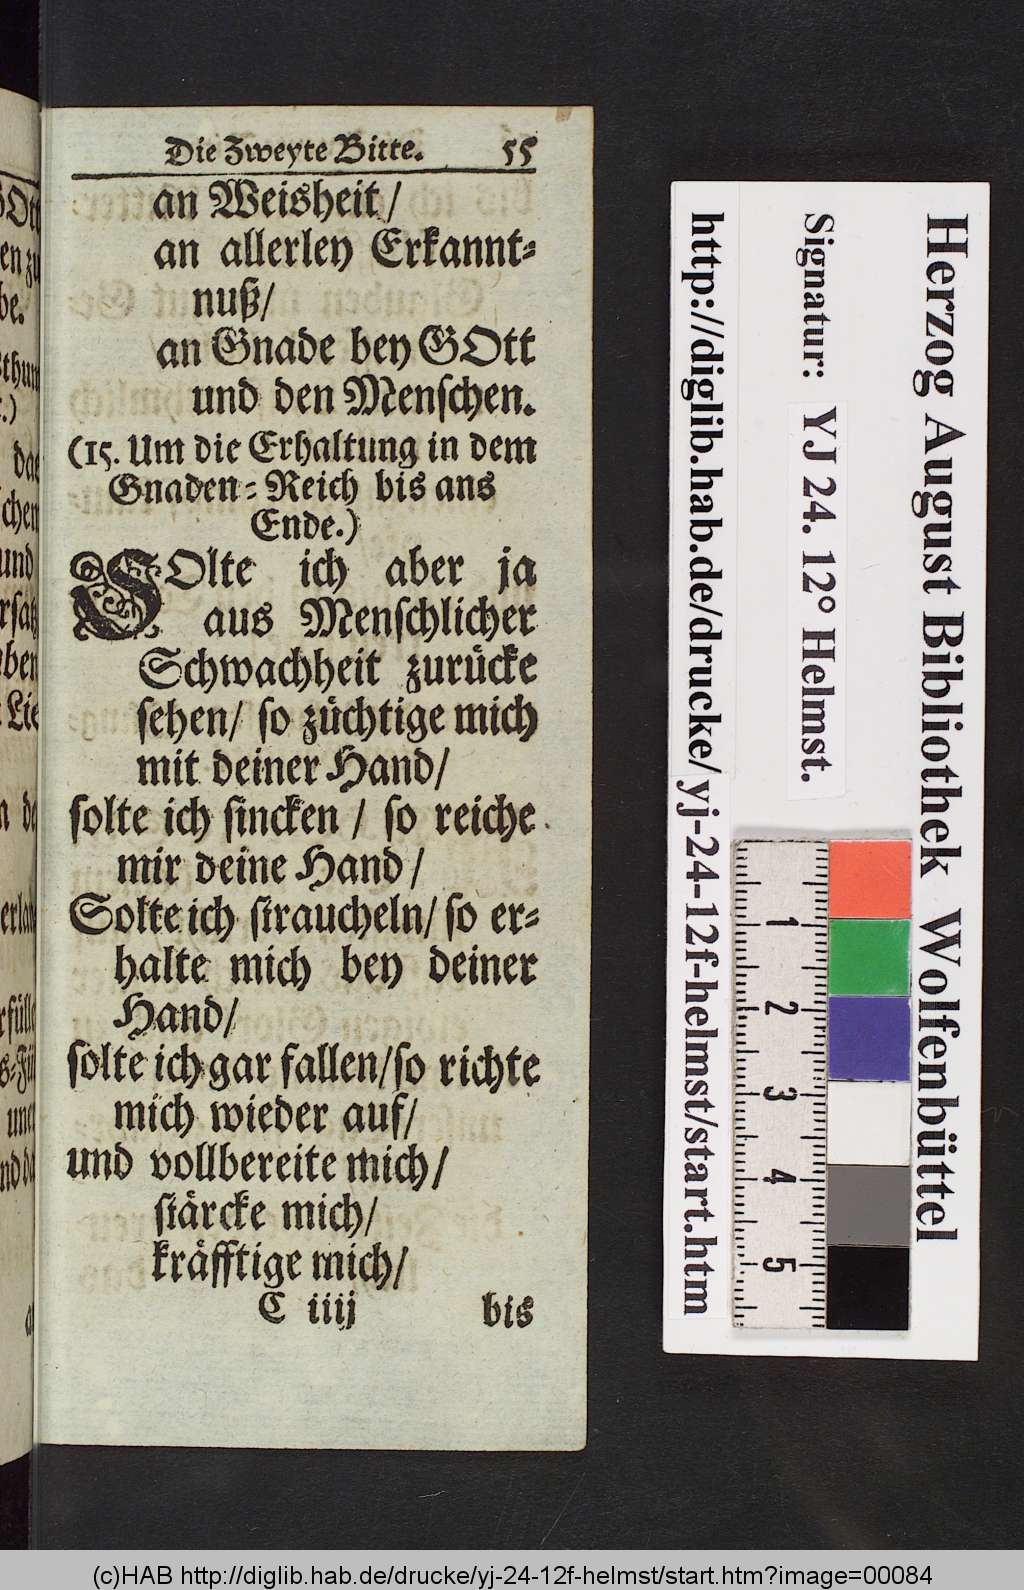 Die Zweyte Bitte. 55
an Weisheit/
an allerley Erkannt-
nuß/
an Gnade bey GOtt
und den Menschen.
(15. Um die Erhaltung in dem
Gnaden-Reich bis ans
Ende.)
SOlte ich aber ja
aus Menschlicher
Schwachheit zurücke
sehen/ so züchtige mich
mit deiner Hand/
solte ich sincken / so reiche
mir deine Hand /
Solte ich straucheln/ so er-
halte mich bey deiner
Hand/
solte ich gar fallen/so richte
mich wieder auf/
und vollbereite mich/
stärcke mich/
kräfftige mich/
C iiij bis
Herzog August Bibliothek Wolfenbüttel
Signatur: YJ 24. 12° Helmst.
http://diglib.hab.de/drucke/yj-24-12f-helmst/start.htm
1
2
3
4
5
(c)HAB http://diglib.hab.de/drucke/yj-24-12f-helmst/start.htm?image=00084